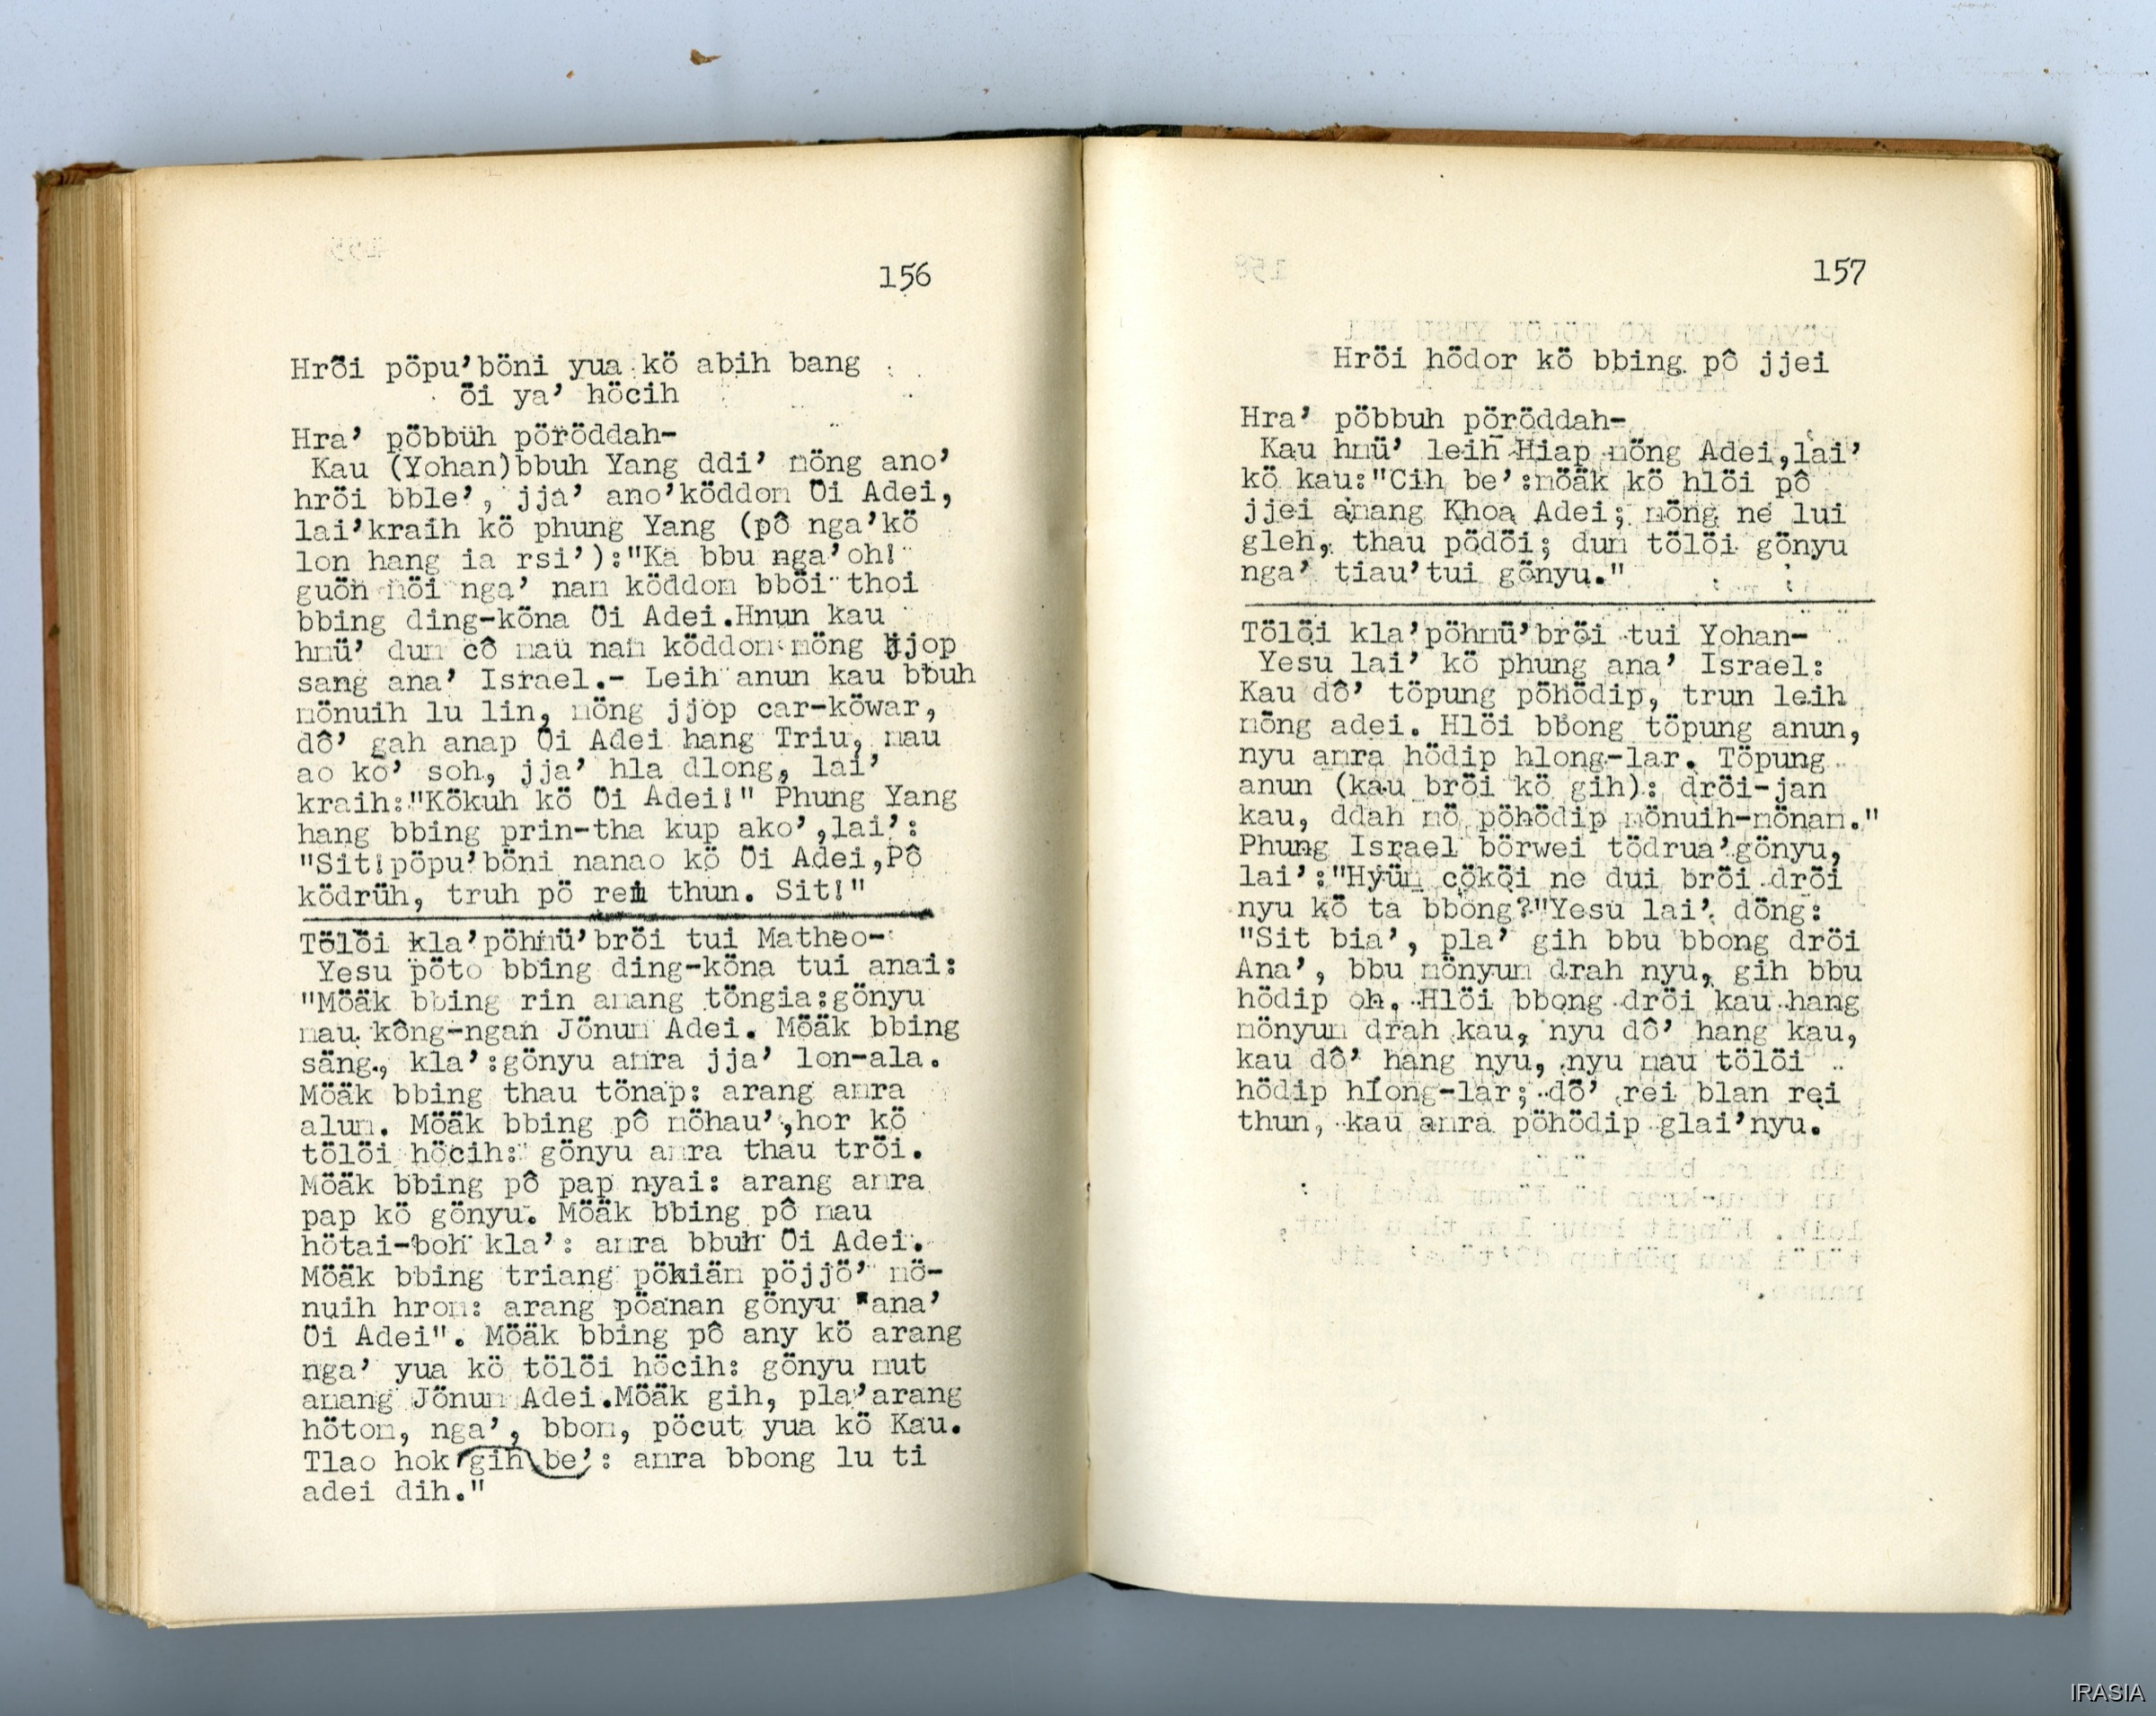 156
Hröi pöpu'böni yua kö abih bang
öi ya' höcih
Hra' pöbbüh pöröddah-
Kau (Yohan)bbuh Yang ddi' möng ano'
hröi bble', jja' ano'köddom Öi Adei,
lai'kraih kö phung Yang (pô nga'kö
lon hang ia rsi'):"Ka bbu nga'oh!
guön höi nga' nam köddom bböi thoi
bbing ding-köna Öi Adei.Hnun kau
hmü' dum cô mau nam köddom möng jjop
sang ana' Israel.- Leih anun kau bbuh
mönuih lu lin, möng jjop car-köwar,
dô' gah anap Öi Adei hang Triu, mau
ao kô' soh, jja' hla dlong, lai'
kraih:"Kökuh kö Öi Adei!" Phung Yang
hang bbing prin-tha kup ako',lai':
"Sit!pöpu'böni nanao kö Öi Adei,Pô
ködrüh, truh pö rei thun. Sit!"
Tölöi kla'pöhmü'bröi tui Matheo-
Yesu pöto bbing ding-köna tui anai:
"Möäk bbing rin amang töngia:gönyu
mau kông-ngan Jönum Adei. Möäk bbing
säng., kla':gönyu amra jja' lon-ala.
Möäk bbing thau tönap: arang amra
alum. Möäk bbing pô möhau',hor kö
tölöi höcih: gönyu amra thau tröi.
Möäk bbing pô pap nyai: arang amra
pap kö gönyu. Möäk bbing pô mau
hötai-boh kla': amra bbuh Öi Adei.
Möäk bbing triang pökiäm pöjjö' mö-
nuih hrom: arang pöanan gönyu "ana'
Öi Adei". Möäk bbing pô any kö arang
nga' yua kö tölöi höcih: gönyu mut
amang Jönum Adei.Möäk gih, pla'arang
hötom, nga', bbom, pöcut yua kö Kau.
Tlao hok gih be': amra bbong lu ti
adei dih."
157
Hröi hödor kö bbing pô jjei
Hra' pöbbuh pöröddah-
Kau hmü' leih Hiap möng Adei,lai'
kö kau:"Cih be':möäk kö hlöi pô
jjei amang Khoa Adei; möng ne lui
gleh, thau pödöi; dum tölöi gönyu
nga' tiau'tui gönyu."
Tölöi kla'pöhmü'bröi tui Yohan-
Yesu lai' kö phung ana' Israel:
Kau dô' töpung pöhödip, trun leih
möng adei. Hlöi bbong töpung anun,
nyu amra hödip hlong-lar. Töpung
anun (kau bröi kö gih): dröi-jan
kau, ddah mö pöhödip mönuih-mönam."
Phung Israel börwei tödrua'gönyu,
lai':"Hyüm cököi ne dui bröi dröi
nyu kö ta bbong?"Yesu lai' döng:
"Sit bia', pla' gih bbu bbong dröi
Ana', bbu mönyum drah nyu, gih bbu
hödip oh. Hlöi bbong dröi kau hang
mönyum drah kau, nyu dô' hang kau,
kau dô' hang nyu, nyu mau tölöi
hödip hlong-lar; dô' rei blan rei
thun, kau amra pöhödip glai'nyu.
IRASIA